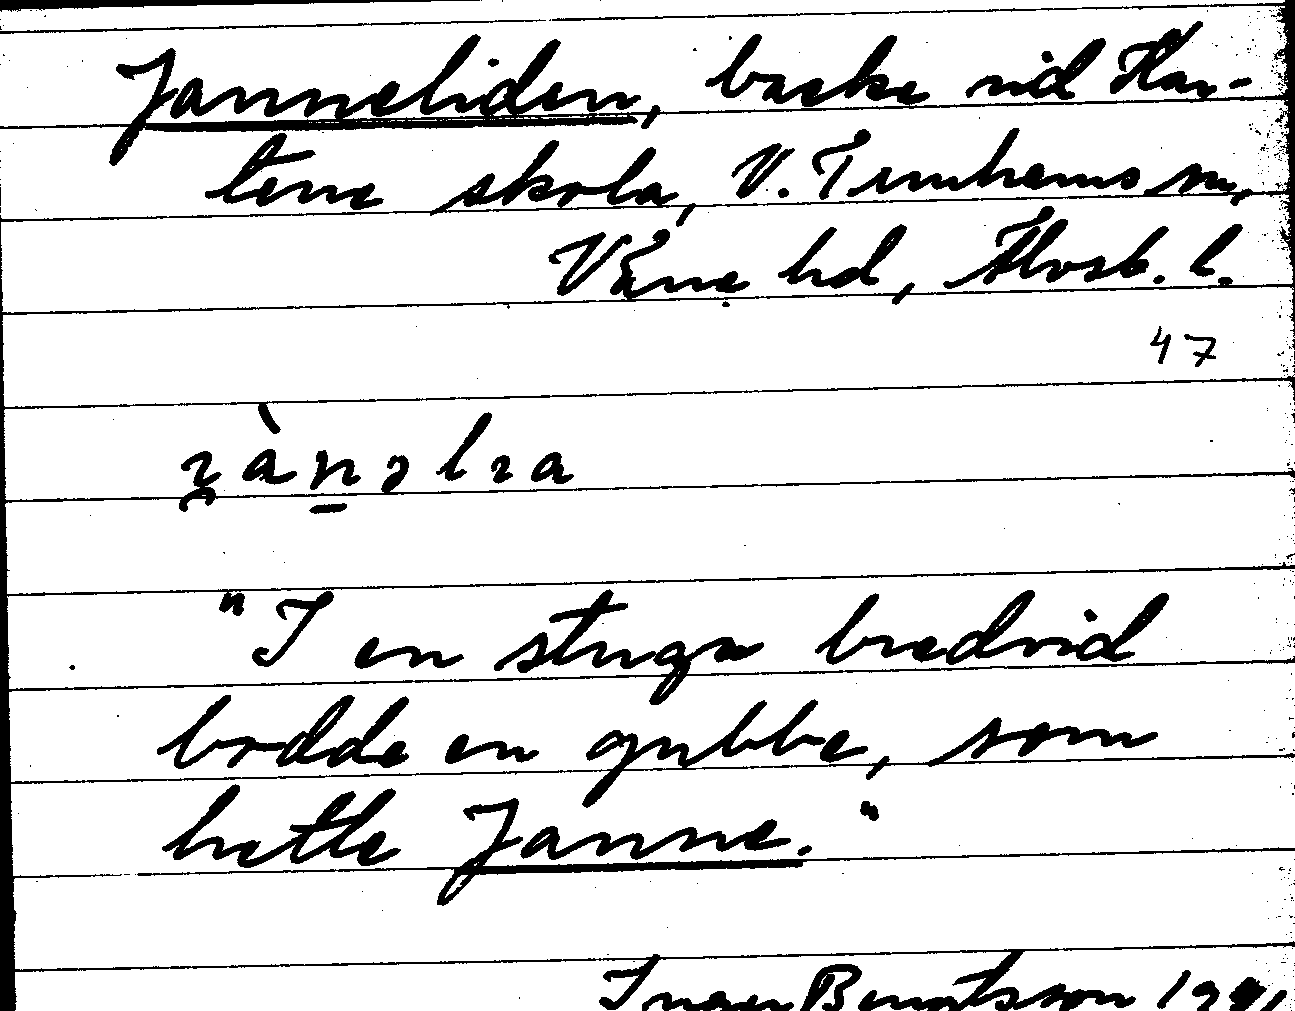 Janneliden, backe vid Han-
tene skola, V. Tunhems sn,
Väne hd, Älvsb. l.
47
"I en stuga bredvid
bodde en gubbe, som
hette Janne."
Inger Bengtsson